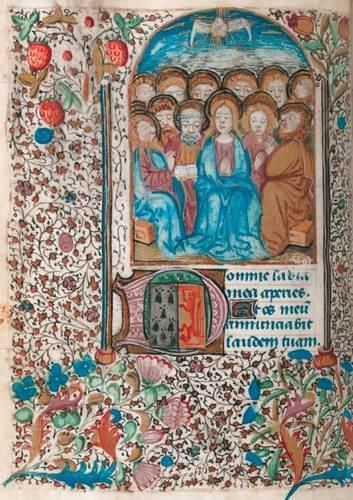 omine labia
mea aperies.
Et os meū
annunciabit
laudem tuam.